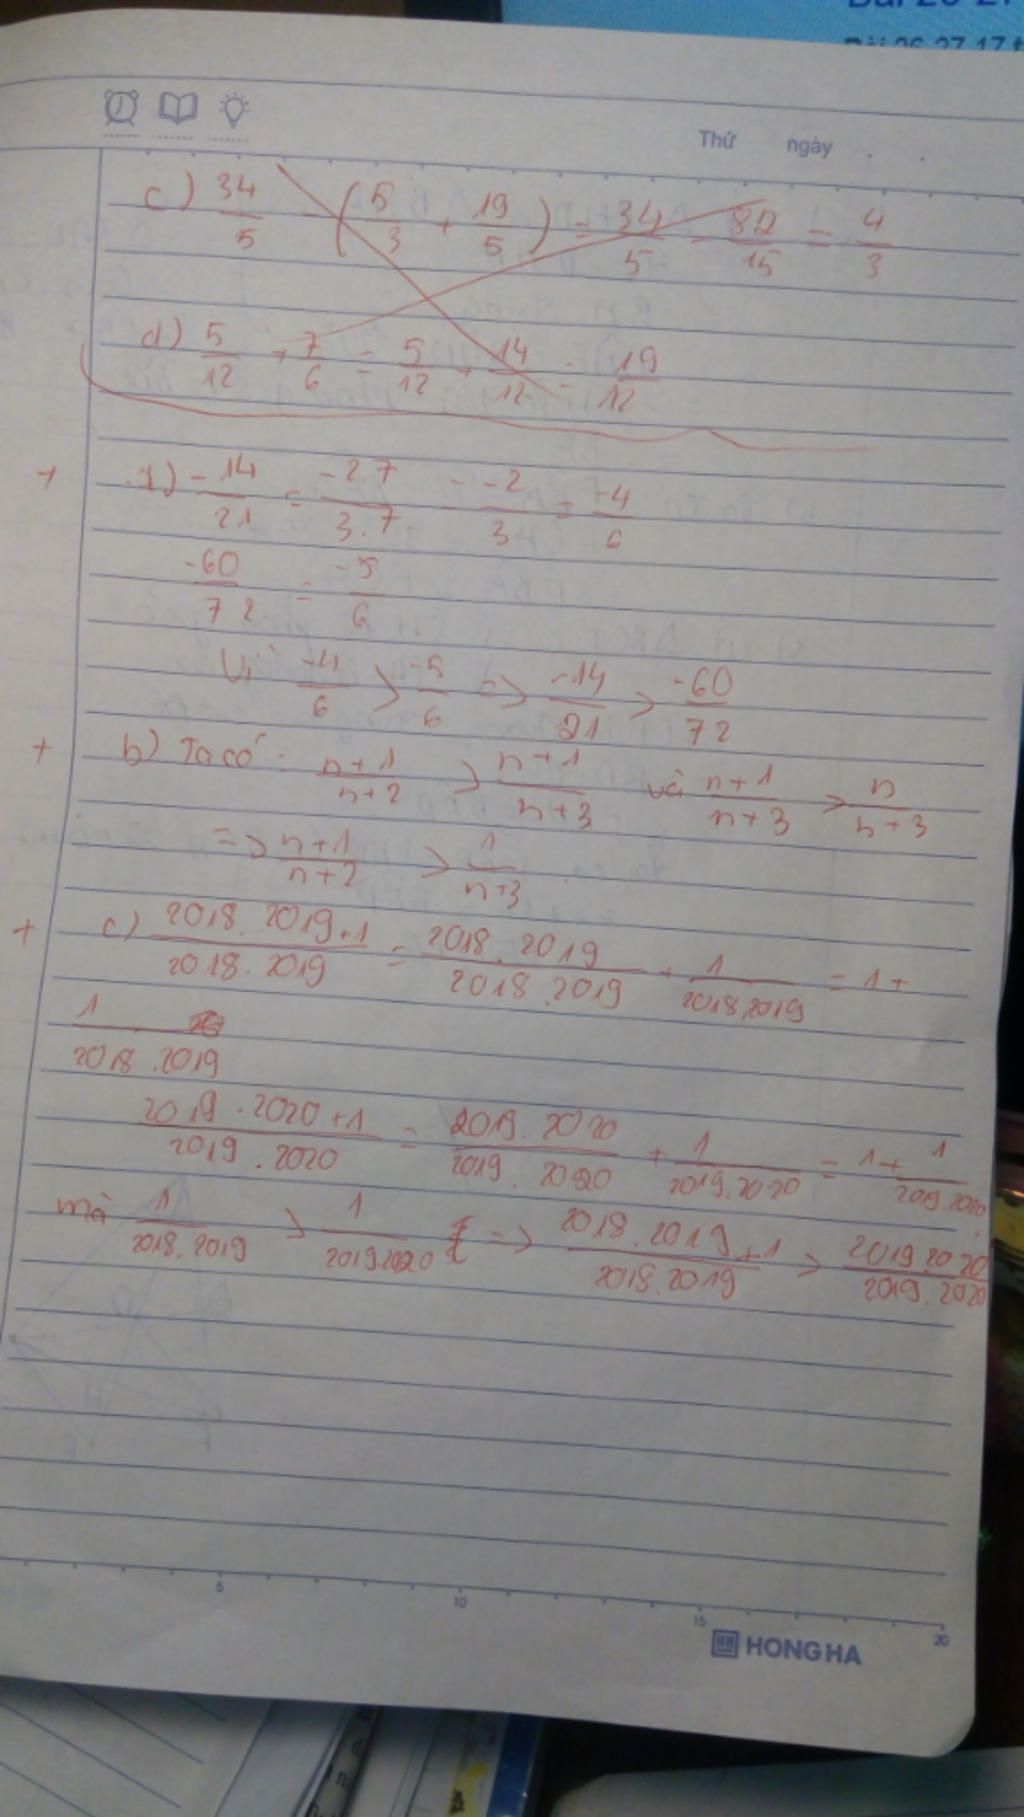 Thứ ngày
c) 34/5 - (5/3 + 19/5) = 34/5 - 82/15 = 4/3
d) 5/12 + 7/6 = 5/12 + 14/12 = 19/12
1) -14/21 = -2.7/3.7 = -2/3 = -4/6
-60/72 = -5/6
Vì -4/6 > -5/6 => -14/21 > -60/72
+ b) Ta có: n+1/n+2 > n+1/n+3 và n+1/n+3 > n/n+3
=> n+1/n+2 > 1/n+3
+ c) 2018.2019+1/2018.2019 = 2018.2019/2018.2019 + 1/2018.2019 = 1+
1/2018.2019
2019.2020+1/2019.2020 = 2019.2020/2019.2020 + 1/2019.2020 = 1+ 1/2019.2020
mà 1/2018.2019 > 1/2019.2020 => 2018.2019+1/2018.2019 > 2019.2020/2019.2020
5 10 15 20
HONG HA